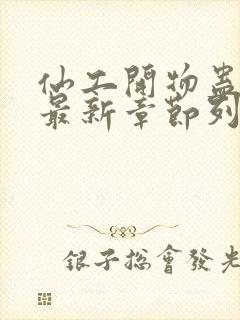 仙工開物蠱
最新章節列
銀子總會發光